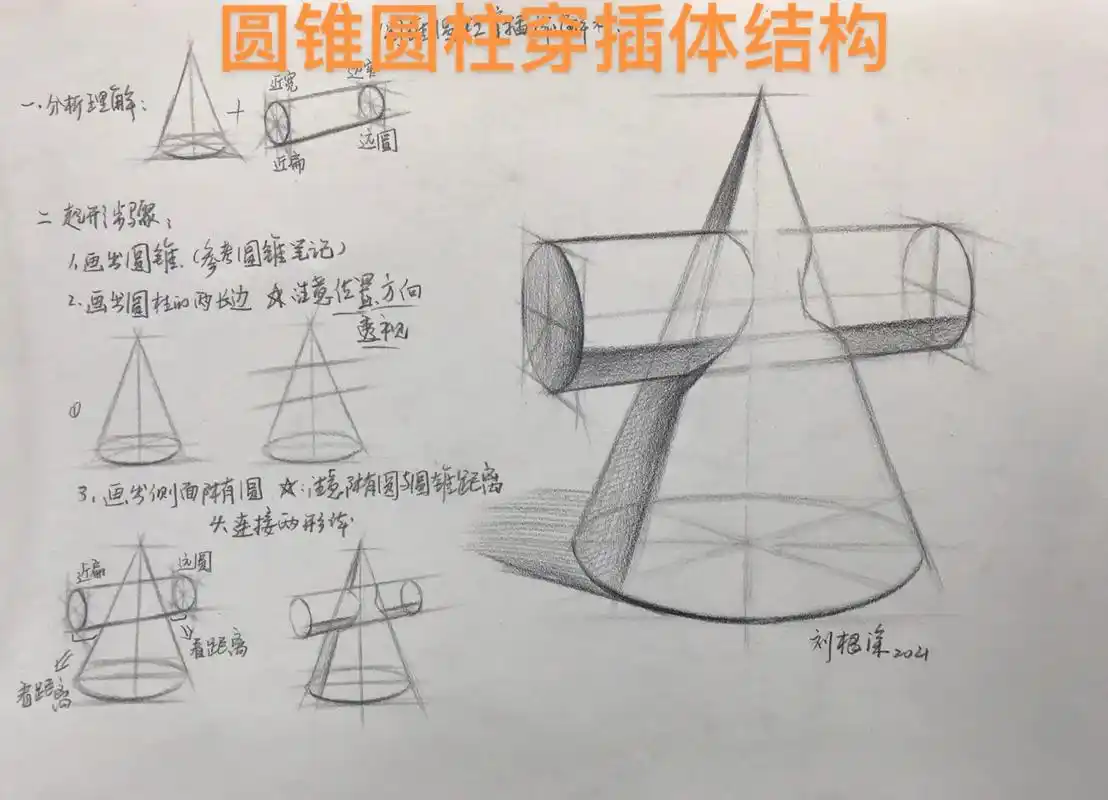 圆锥圆柱穿插体结构
一.分析理解:
+
近宽
远窄
近扁
远圆
二 起形步骤:
1.画出圆锥.(参考圆锥笔记)
2.画出圆柱的两长边 ☆:注意位置方向
透视
①
3.画出侧面两个圆 ☆:注意两个圆与圆锥距离
4.连接两形体
近扁
远圆
看距离
看距离
刘根深 2021